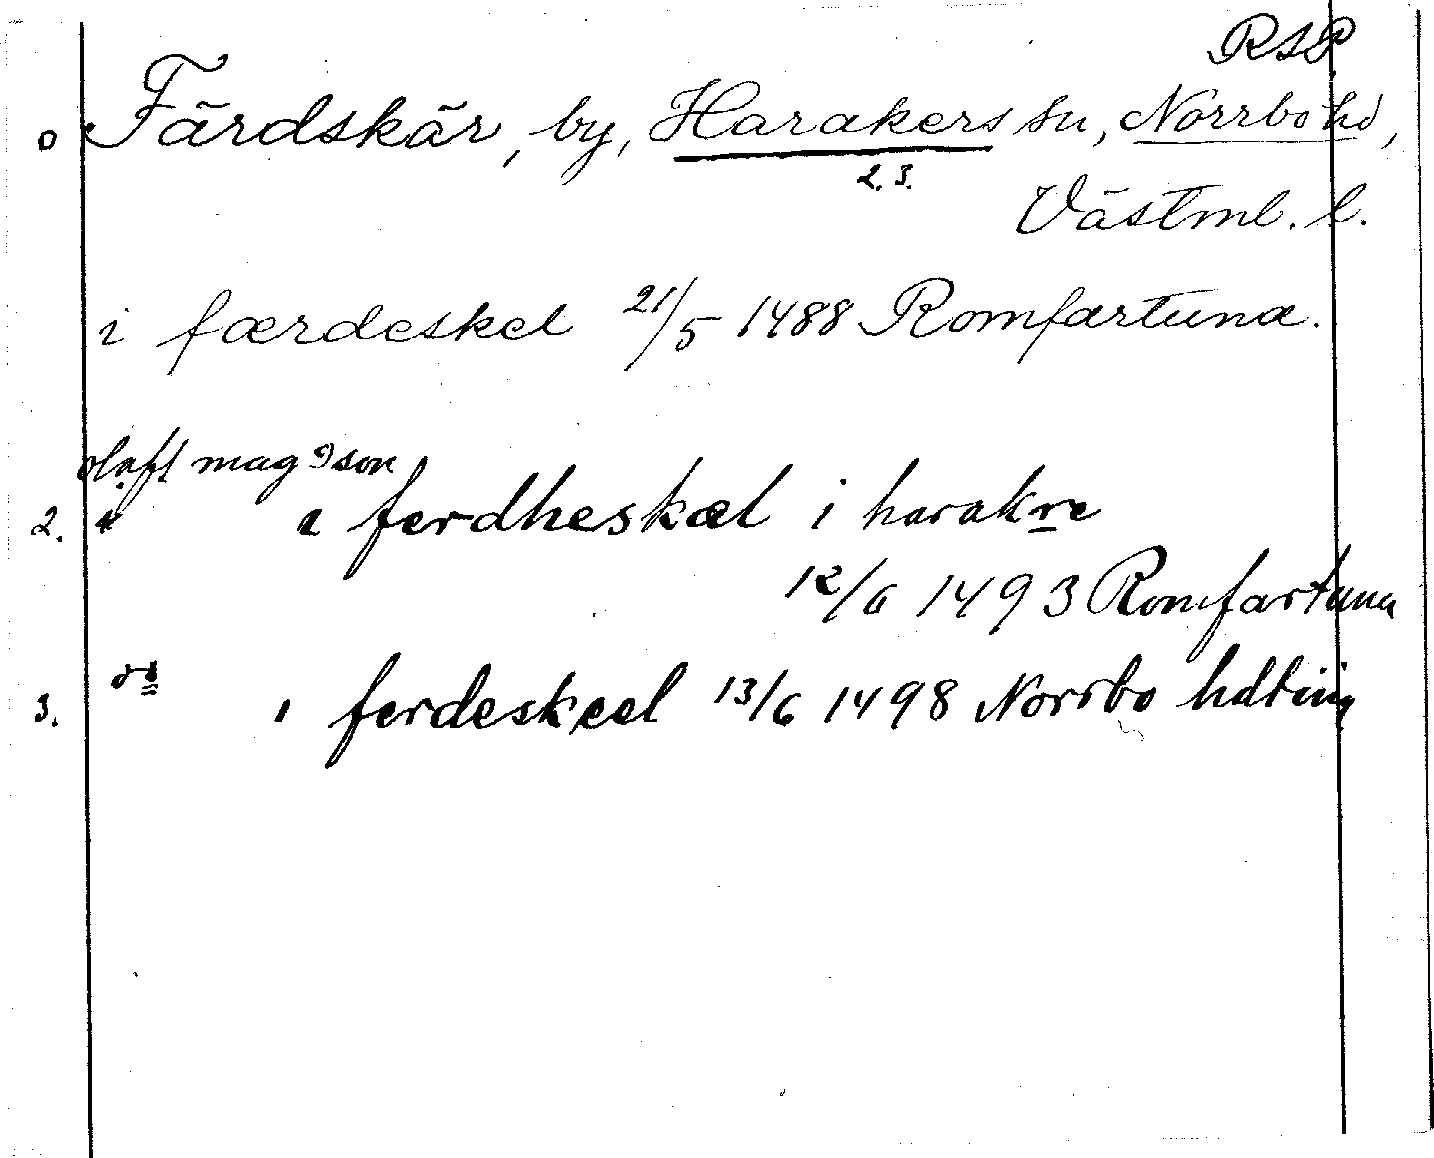 RSP.
o Färdskär, by, Harakers sn, Norrbo hd,
2. 3.
Västml. l.
i færdeskel 21/5 1488 Romfartuna.
olaff mag9son
2. i ferdheskæl i harakre
12/6 1493 Romfartuna
3. i ferdeskeel 13/6 1498 Norrbo hdting